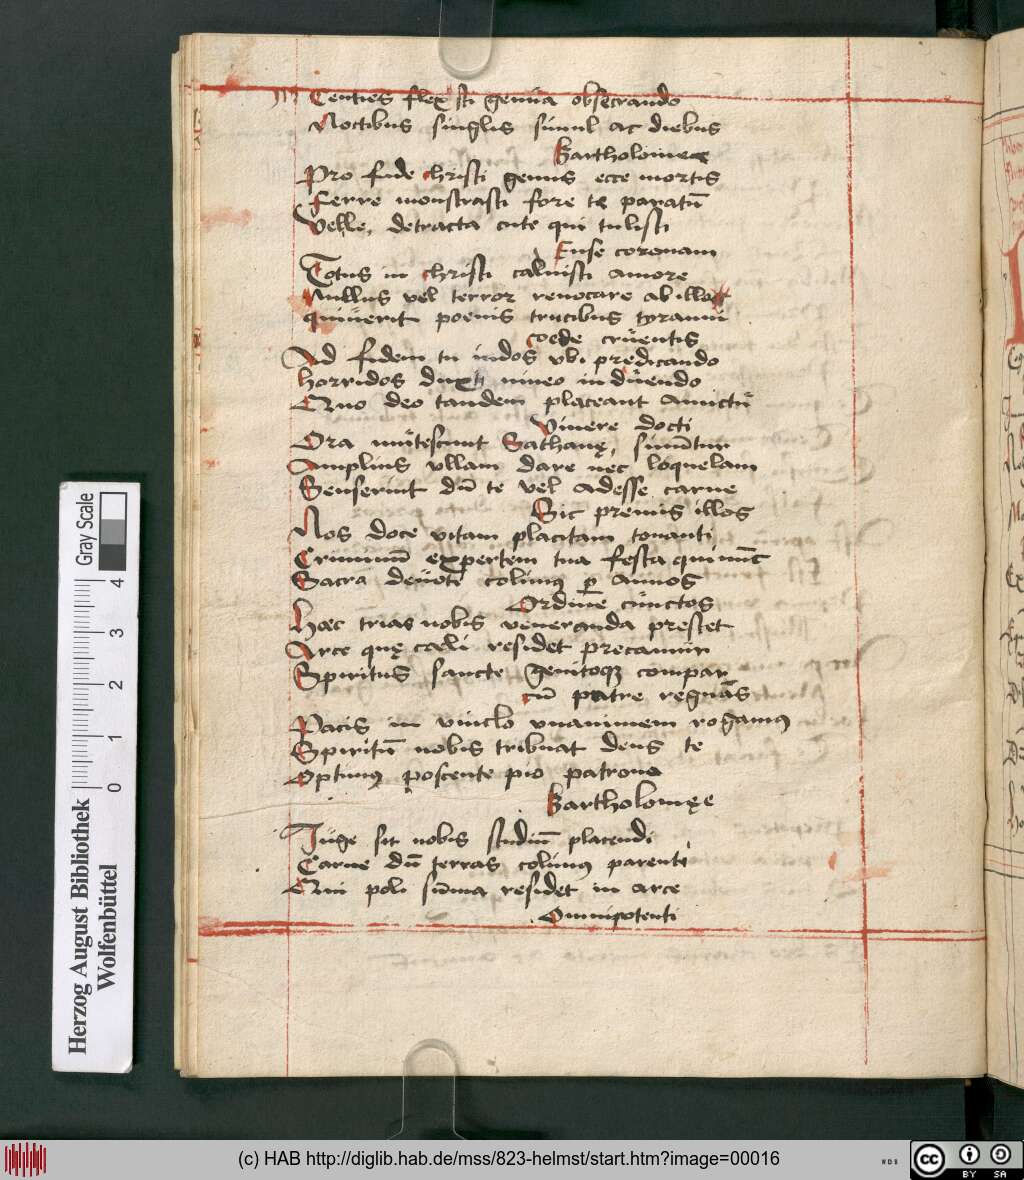 Centies flexisti genua obsecrando
Noctibus singlis simul ac diebus
Bartholomee
Pro fide christi genus ecce mortis
Ferre monstrasti fore te paratū
Velle, detracta cute qui tulisti
Ense coronam
Totus in christi caluisti amore
Nullus vel terror reuocare ab illo
quiuerit poenis trucibus tyranni
coede cruentis
Ad fidem tu indos vbi predicando
horridos duxti niueo induendo
Quo deo tandem placeant amictu
Viuere docti
Ora mutescunt Sathanę, sinūtur
Amplius vllam dare nec loquelam
Senserint dū te vel adesse carne
Sic premis illos
Nos doce vitam placitam tonanti
Criminū expertem tua festa qui nūc
Sacra deuoti colimus per annos
Ordine cunctos
Hoec trias nobis veneranda prestet
Arce quę cæli residet precamur
Spiritus sancte genitoqz compar
cū patre regnās
Pacis in vinclo vnanimem rogamus
Spiritū nobis tribuat deus te
Optimus poscente pio patrono
Bartholomęe
Iuge sit nobis studiū placendi
Carne dū terras colimus parenti
Qui poli sūma residet in arce
Omnipotenti
Herzog August Bibliothek
Wolfenbüttel
Gray Scale
0 1 2 3 4
(c) HAB http://diglib.hab.de/mss/823-helmst/start.htm?image=00016
WDB
cc BY SA